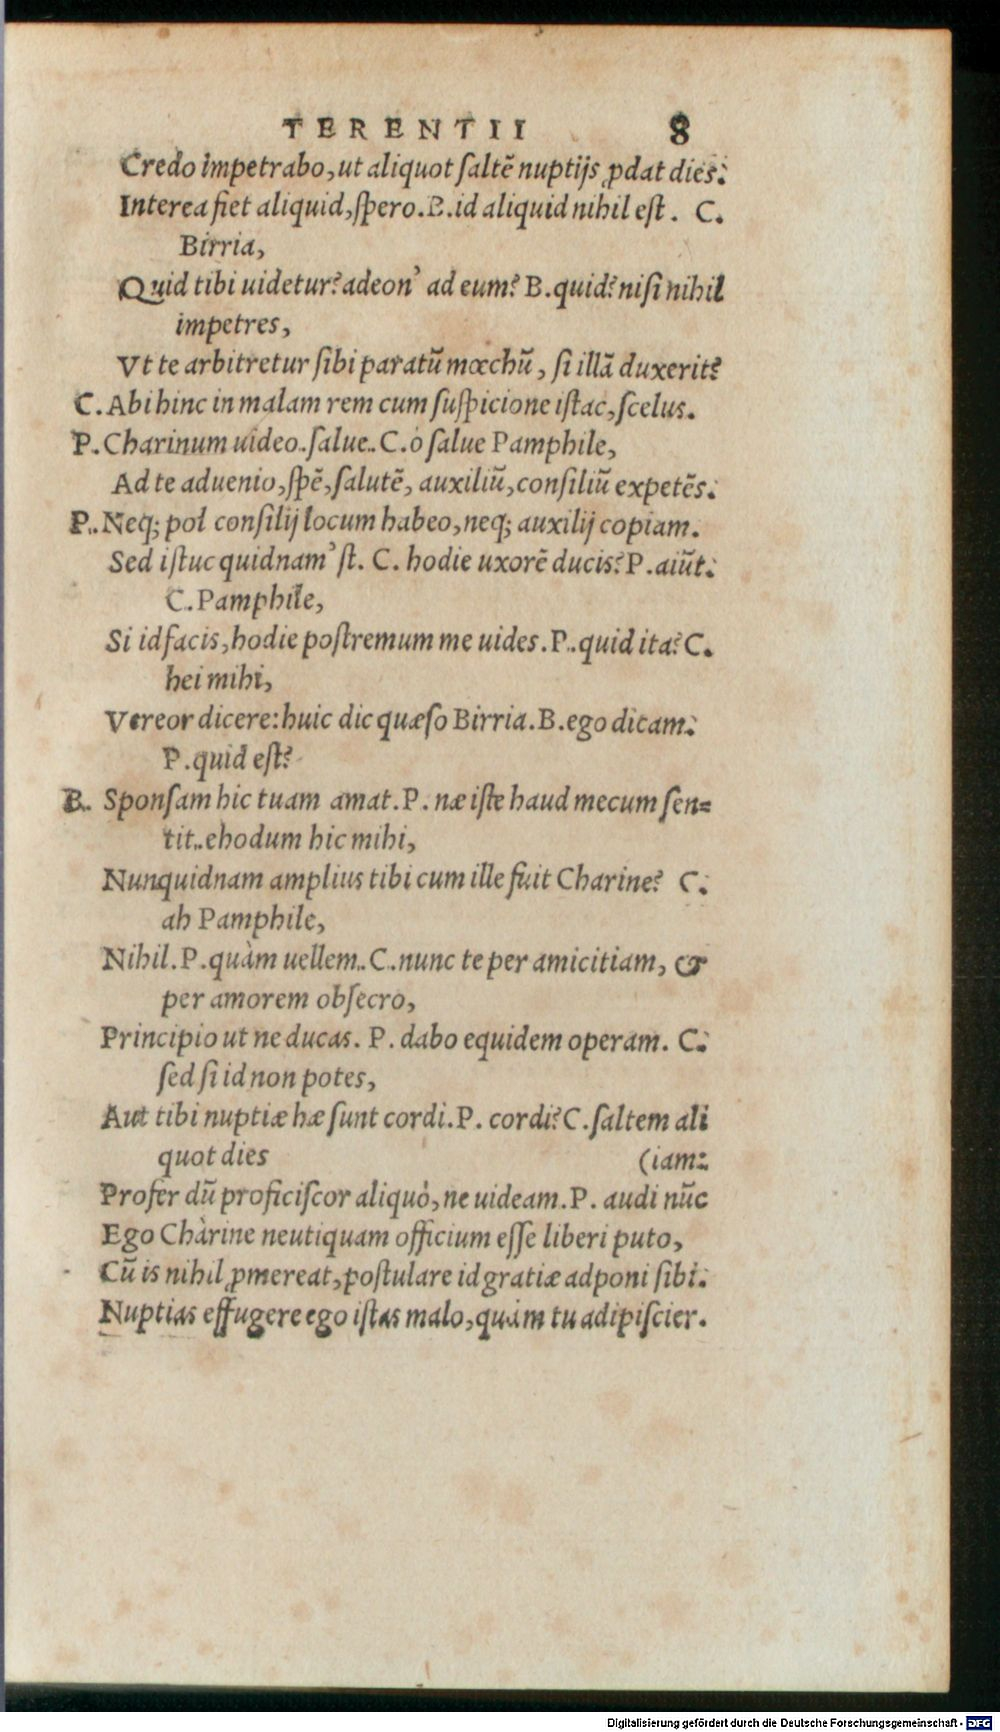 TERENTII 8
Credo impetrabo, ut aliquot ſaltē nuptijs ꝓdat dies.
Interea fiet aliquid, ſpero. B. id aliquid nihil eſt. C.
Birria,
Quid tibi uidetur? adeon' ad eum? B. quid? niſi nihil
impetres,
Vt te arbitretur ſibi paratū mœchū, ſi illā duxerit?
C. Abi hinc in malam rem cum ſuſpicione iſtac, ſcelus.
P. Charinum uideo. ſalue. C. ò ſalue Pamphile,
Ad te aduenio, ſpē, ſalutē, auxiliū, conſiliū expetēs.
P. Neq; pol conſilij locum habeo, neq; auxilij copiam.
Sed iſtuc quidnam'ſt. C. hodie uxorē ducis? P. aiūt.
C. Pamphile,
Si id facis, hodie poſtremum me uides. P. quid ita? C.
hei mihi,
Vereor dicere: huic dic quæſo Birria. B. ego dicam.
P. quid eſt?
B. Sponſam hic tuam amat. P. næ iſte haud mecum ſen=
tit. ehodum hic mihi,
Nunquidnam amplius tibi cum ille fuit Charine? C.
ah Pamphile,
Nihil. P. quàm uellem. C. nunc te per amicitiam, &
per amorem obſecro,
Principio ut ne ducas. P. dabo equidem operam. C.
ſed ſi id non potes,
Aut tibi nuptiæ hæ ſunt cordi. P. cordi? C. ſaltem ali
quot dies (iam:
Profer dū proficiſcor aliquò, ne uideam. P. audi nūc
Ego Chàrine neutiquam officium eſſe liberi puto,
Cū is nihil ꝓmereat, poſtulare id gratiæ adponi ſibi.
Nuptias effugere ego iſtas malo, quàm tu adipiſcier.
Digitalisierung gefördert durch die Deutsche Forschungsgemeinschaft - DFG